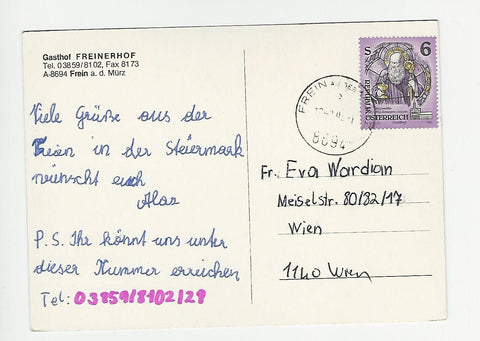 Gasthof FREINERHOF
Tel. 03859/8102, Fax 8173
A-8694 Frein a. d. Mürz
Viele Grüße aus der
Frein in der Steiermark
wünscht euch
P.S. Ihr könnt uns unter
dieser Nummer erreichen
Tel: 03859/8102/29
S 6
REPUBLIK
ÖSTERREICH
FREIN
8694
Fr. Eva Wardian
Meiselstr. 80/82/17
Wien
1140 Wien